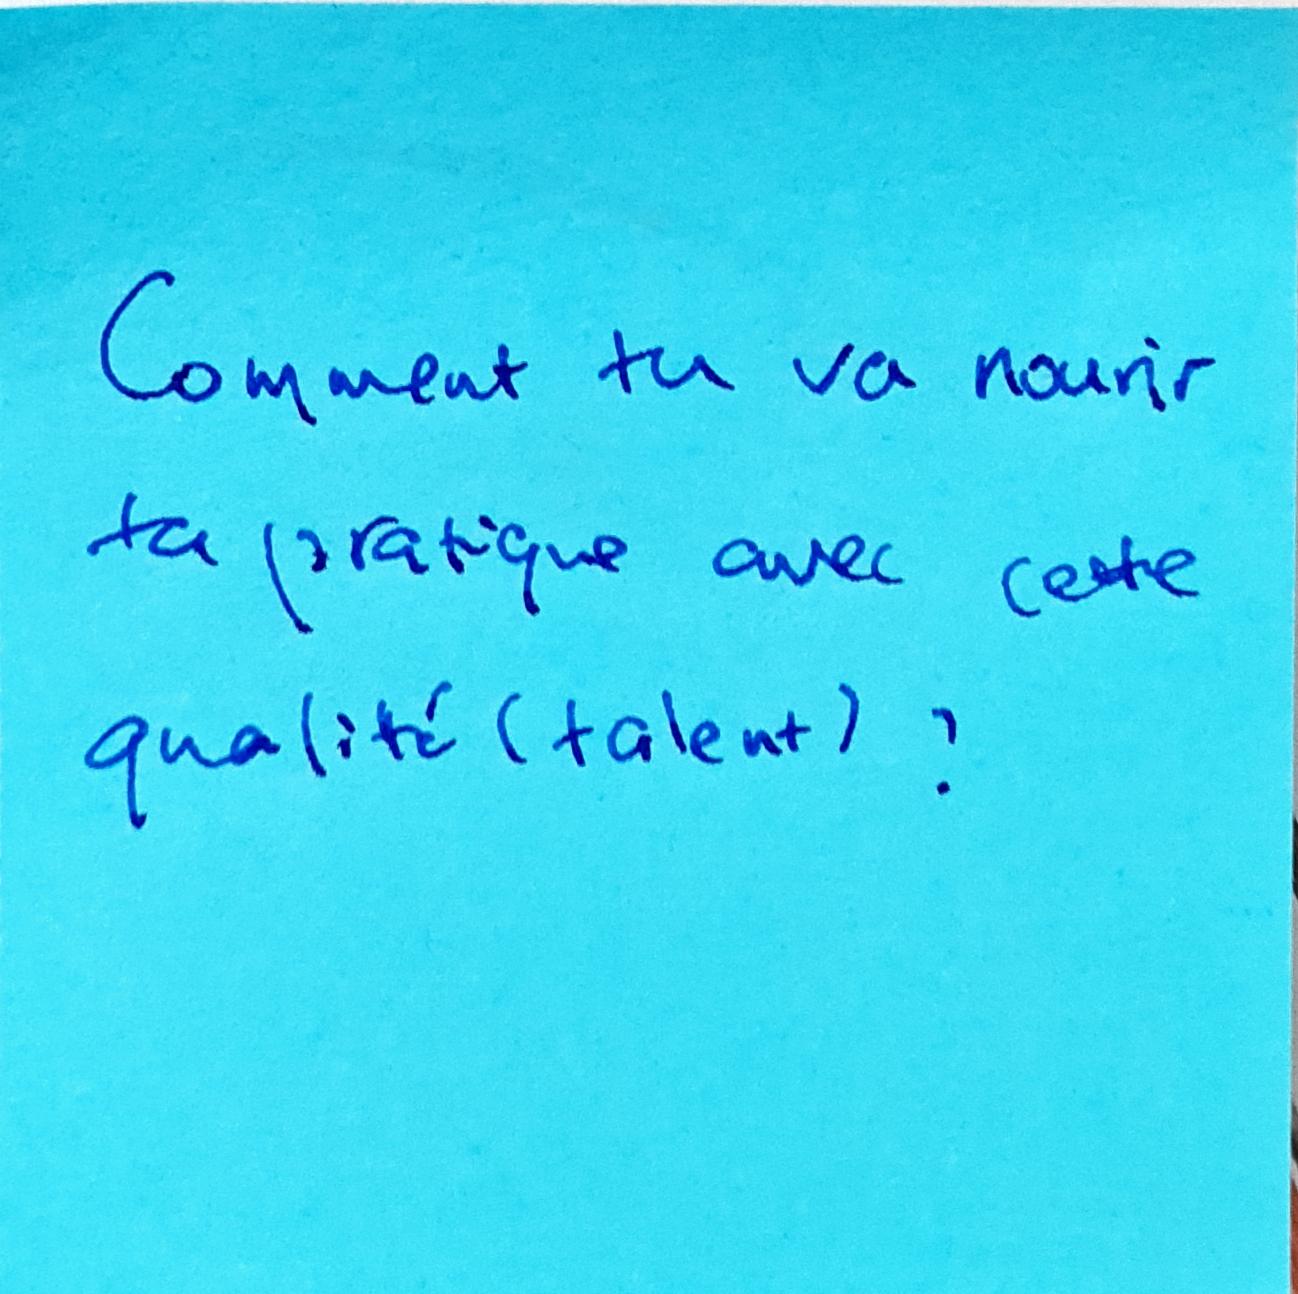 Comment tu va nourir
ta pratique avec cette
qualité (talent) ?